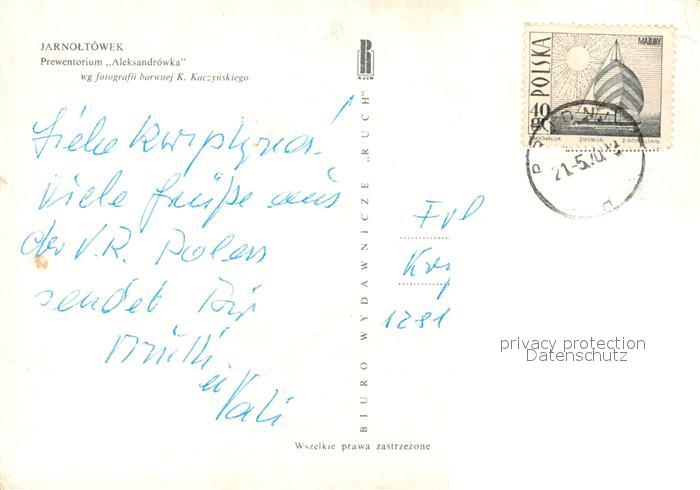 JARNOŁTÓWEK
Prewentorium „Aleksandrówka"
wg fotografii barwnej K. Kaczyńskiego
RUCH
Liebe
viele Grüße aus
der V.R. Polen
sendet Dir
u
Vati
BIURO WYDAWNICZE „RUCH"
Wszelkie prawa zastrzeżone
POLSKA
MAZURY
40
GR
21.-5.70
Frl
1281
privacy protection
Datenschutz